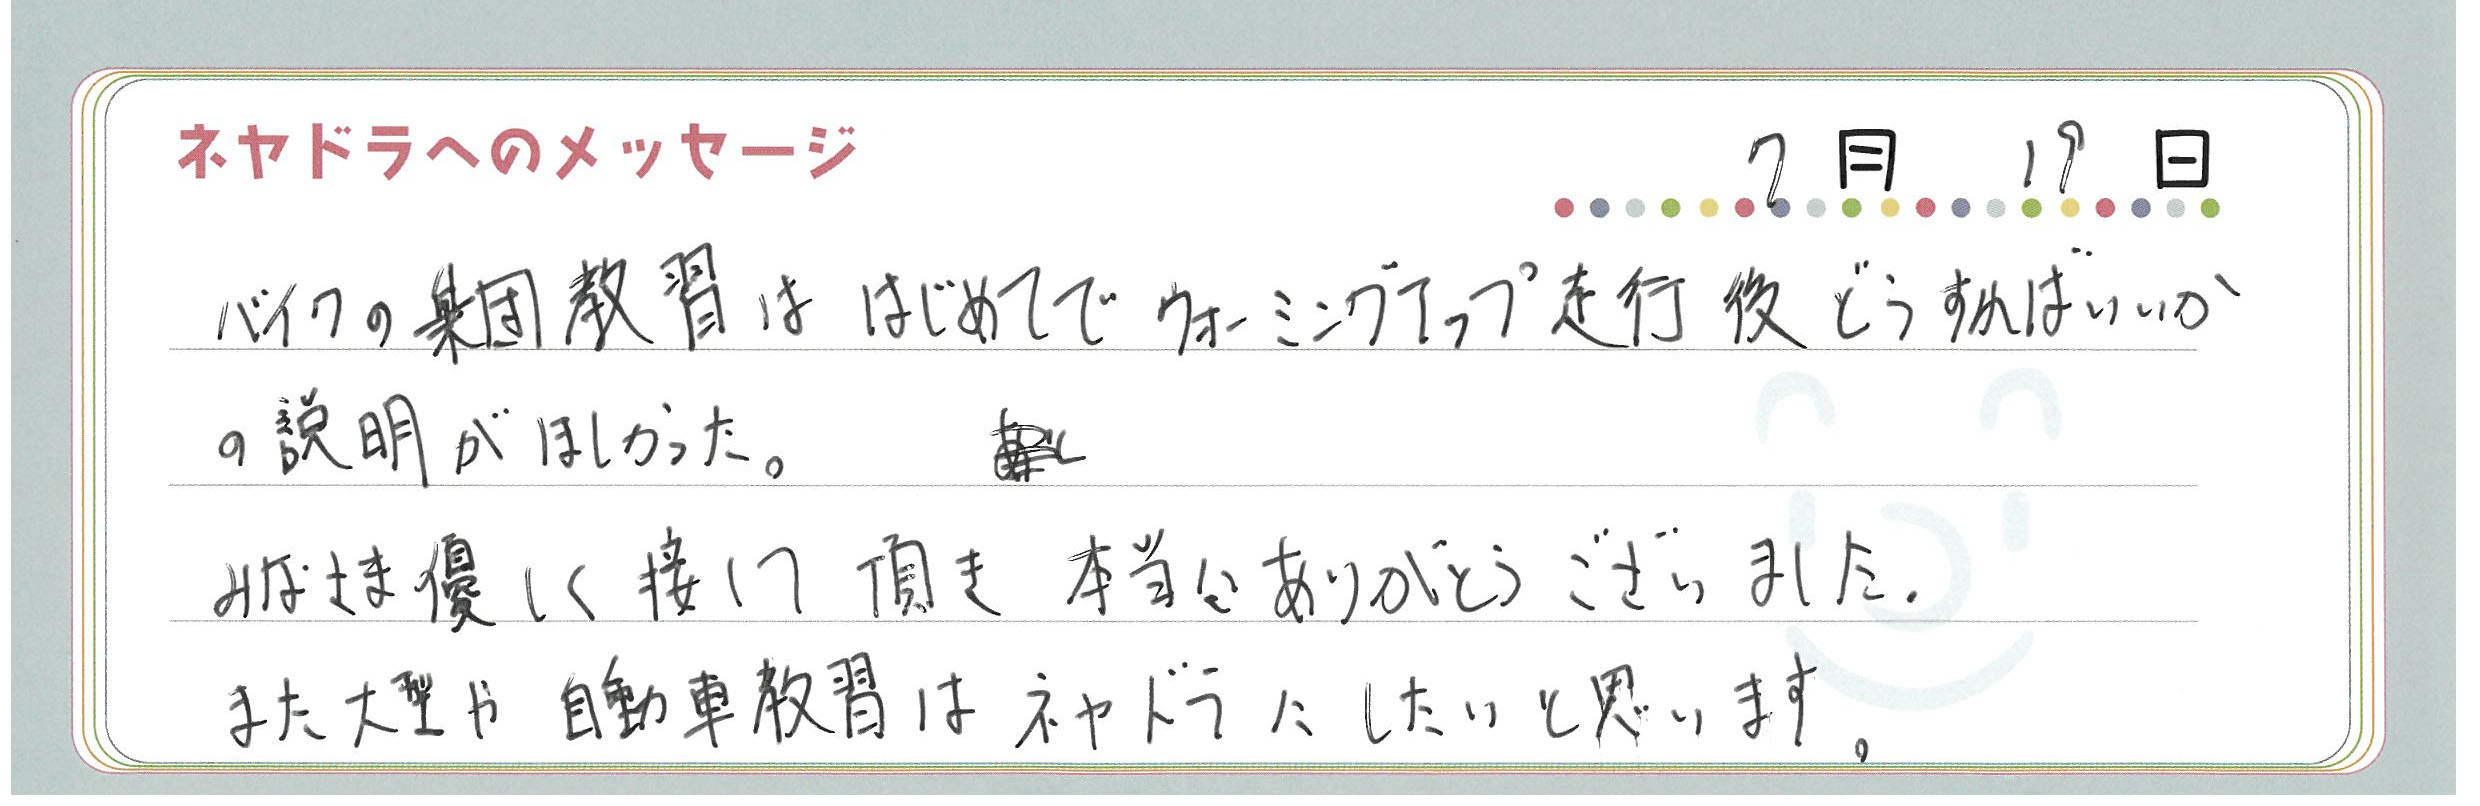 ネヤドラへのメッセージ
7月 19日
バイクの集団教習は はじめてで ウォーミングアップ走行後 どうすればいいか
の説明がほしかった。
みなさま優しく接して頂き 本当にありがとうございました.
また大型や自動車教習はネヤドラにしたいと思います。